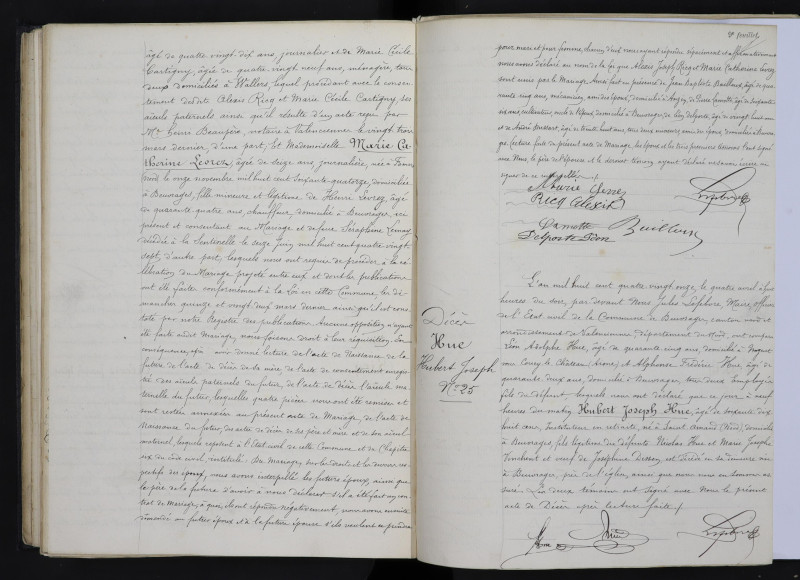 âgé de quatre vingt dix ans, journalier et de Marie Cécile
Cartigny, âgée de quatre vingt neuf ans, ménagère, tous
deux domiciliés à Wallers, lequel procédant avec le consen-
tement desdits Alexis Ricq et Marie Cécile Cartigny, ses
aïeuls paternels ainsi qu'il résulte d'un acte reçu par
Me Beaufois, notaire à Valenciennes le vingt trois
mars dernier, d'une part, et Mademoiselle Marie Ca-
thérine Levrez, âgée de seize ans, journalière, née à
le onze novembre mil huit cent soixante quatorze, domiciliée
à Beuvrages, fille mineure et légitime de Henri Levrez, âgé
de quarante quatre ans, chauffeur, domicilié à Beuvrages, ici
présent et consentant au Mariage et de feue Séraphine Lemay
décédée à La Sentinelle le seize juin mil huit cent quatre vingt
sept, d'autre part, lesquels nous ont requis de procéder à la cé-
lébration du Mariage projeté entre eux et dont les publications
ont été faites conformément à la Loi en cette Commune, les di-
manches quinze et vingt deux mars dernier ainsi qu'il est cons-
taté par notre Registre des publications. Aucune opposition n'ayant
été faite audit Mariage, nous faisons droit à leur réquisition. En
conséquence, après avoir donné lecture de l'acte de Naissance de la
future, de l'acte de décès de la mère, de l'acte de consentement
des aïeuls paternels du futur, de l'acte de décès de l'aïeule ma-
ternelle du futur, lesquelles quatre pièces nous ont été remises et
sont restées annexées au présent acte de Mariage, de l'acte de
Naissance du futur, des actes de décès de ses père et mère et de son aïeul
maternel, lesquels reposent à l'Etat civil de cette Commune et du Chapitre
six du code civil, intitulé: Du Mariage, sur les droits et les devoirs res-
pectifs des époux, nous avons interpellé les futurs époux, ainsi que
le père de la future d'avoir à nous déclarer s'il a été fait un con-
trat de Mariage, à quoi, ils ont répondu négativement, nous avons ensuite
demandé au futur époux et à la future épouse s'ils veulent se prendre
8e feuillet
pour mari et pour femme, chacun d'eux nous ayant répondu séparément et affirmativement
nous avons déclaré au nom de la loi que Alexis Joseph Ricq et Marie Catherine Levrez
sont unis par le Mariage. Ainsi fait en présence de Jean Baptiste Bailleux, âgé de qua-
rante cinq ans, mécanicien, ami des époux, domicilié à Anzin, de Pierre Lamotte, âgé de soixante
ans, domicilié à Beuvrages, de Léon Delporte, âgé de vingt huit ans
et de André, âgé de trente huit ans, tous deux mineurs, amis des époux, domiciliés à Beuvra-
ges. Lecture faite du présent acte de Mariage, les époux et les trois premiers témoins l'ont signé
avec Nous, le père de l'épouse et le dernier témoin, ayant déclaré ne savoir écrire ni
signer de ce interpellés.
Marie Levrez
Ricq Alexis
Lamotte Bailleux
Delporte Léon
Décès
Hue
Hubert Joseph
No 25
L'an mil huit cent quatre vingt onze, le quatre avril à
heures du soir, par devant Nous Jules Lefebvre, Maire, officier
de l'Etat civil de la Commune de Beuvrages, canton nord et
arrondissement de Valenciennes, département du Nord, ont comparu
Léon Adolphe Hue, âgé de quarante cinq ans, domicilié à Nogent
Coucy le Château (Aisne) et Alphonse Frédéric Hue, âgé de
quarante deux ans, domicilié à Beuvrages, tous deux Employés
fils du défunt, lesquels nous ont déclaré que ce jour, à neuf
heures du matin, Hubert Joseph Hue, âgé de soixante dix
huit ans, Instituteur en retraite, né à Saint Amand (Nord), domicilié
à Beuvrages, fils légitime des défunts Nicolas Hue et Marie Joseph
et veuf de Joséphine, est décédé en sa demeure sise
à Beuvrages, près de l'église, ainsi que nous nous en sommes as-
suré. Les deux témoins ont signé avec Nous le présent
acte de Décès après lecture faite.
Hue Hue